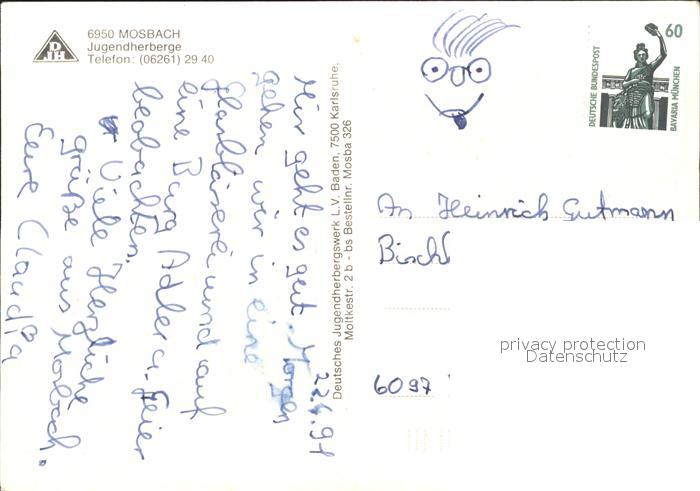 DJH
6950 MOSBACH
Jugendherberge
Telefon: (06261) 29 40
22.4.91
Mir geht es gut. Morgen
gehen wir in eine
Glasbläserei und auf
eine Burg Adler u. Geier
beobachten.
Viele Herzliche
grüße aus Mosbach.
Eure Claudia
Deutsches Jugendherbergswerk L.V. Baden, 7500 Karlsruhe,
Moltkestr. 2 b - bs Bestellnr. Mosba 326
60
DEUTSCHE BUNDESPOST
BAVARIA MÜNCHEN
An Heinrich Gutmann
Bischh
privacy protection
Datenschutz
6097